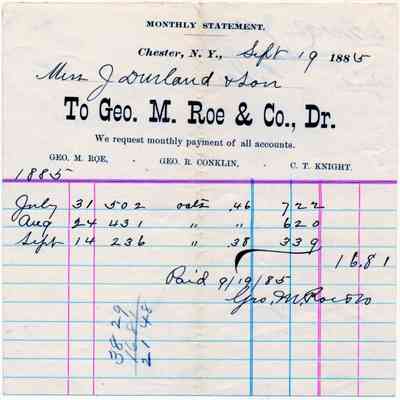 MONTHLY STATEMENT.
Chester, N. Y., Sept 19 1885
Mess J Durland & Son
To Geo. M. Roe & Co., Dr.
We request monthly payment of all accounts.
GEO. M. ROE, · GEO. R. CONKLIN, · C. T. KNIGHT.
1885
July 31 502 oats .46 722
Aug 24 431 " " 620
Sept 14 236 " .38 339
16.81
Paid 9/19/85
Geo. M. Roe & Co
38 29
16 81
21 48